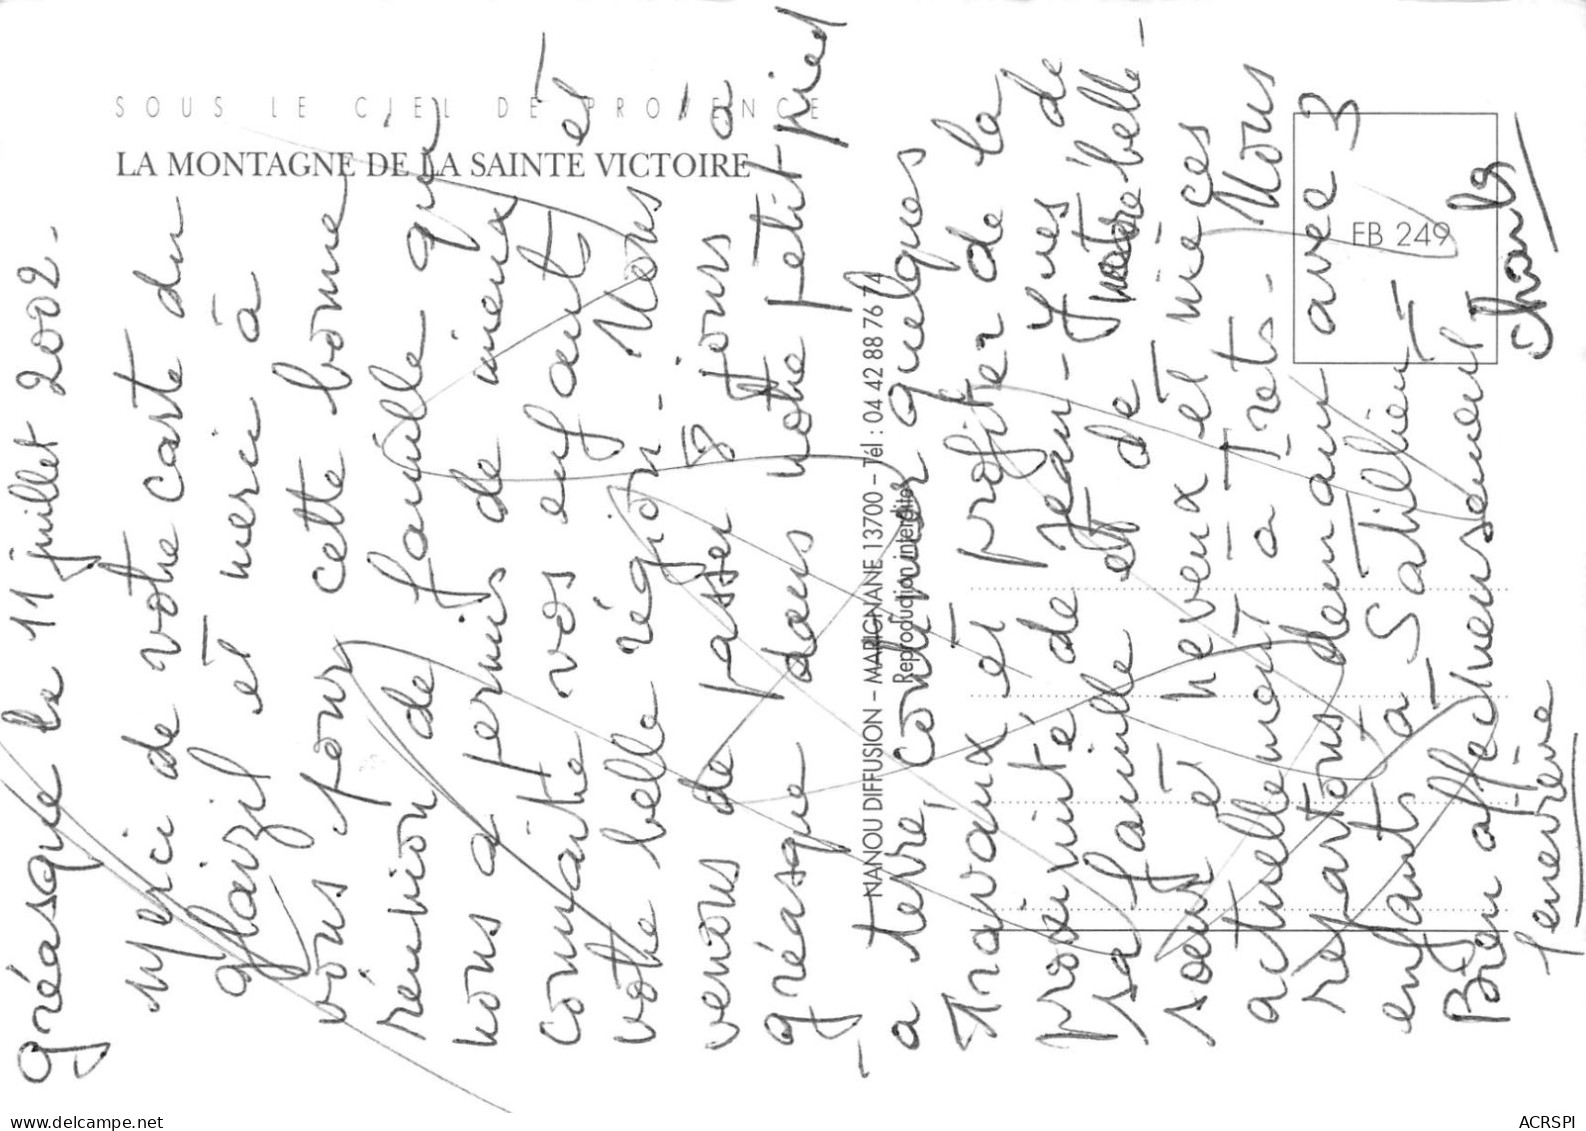 SOUS LE CIEL DE PROVENCE
LA MONTAGNE DE LA SAINTE VICTOIRE
Gréasque le 11 juillet 2002.
Merci de votre carte du
et merci à
vous pour cette bonne
réunion de famille qui
nous a permis de mieux
connaître vos enfants et
votre belle région. Nous
venons de passer 8 jours à
Gréasque dans notre petit pied
-à terre, continuer quelques
travaux et profiter de la
proximité de Jean-Yves de
sa famille et de notre belle-
soeur et neveux et nièces
actuellement à Trets. Nous
repartons demain avec 3
enfants à Satillieu
Bien affectueusement
Charles
NANOU DIFFUSION – MARIGNANE 13700 – Tél : 04 42 88 76 74
Reproduction interdite
FB 249
www.delcampe.net
ACRSPI